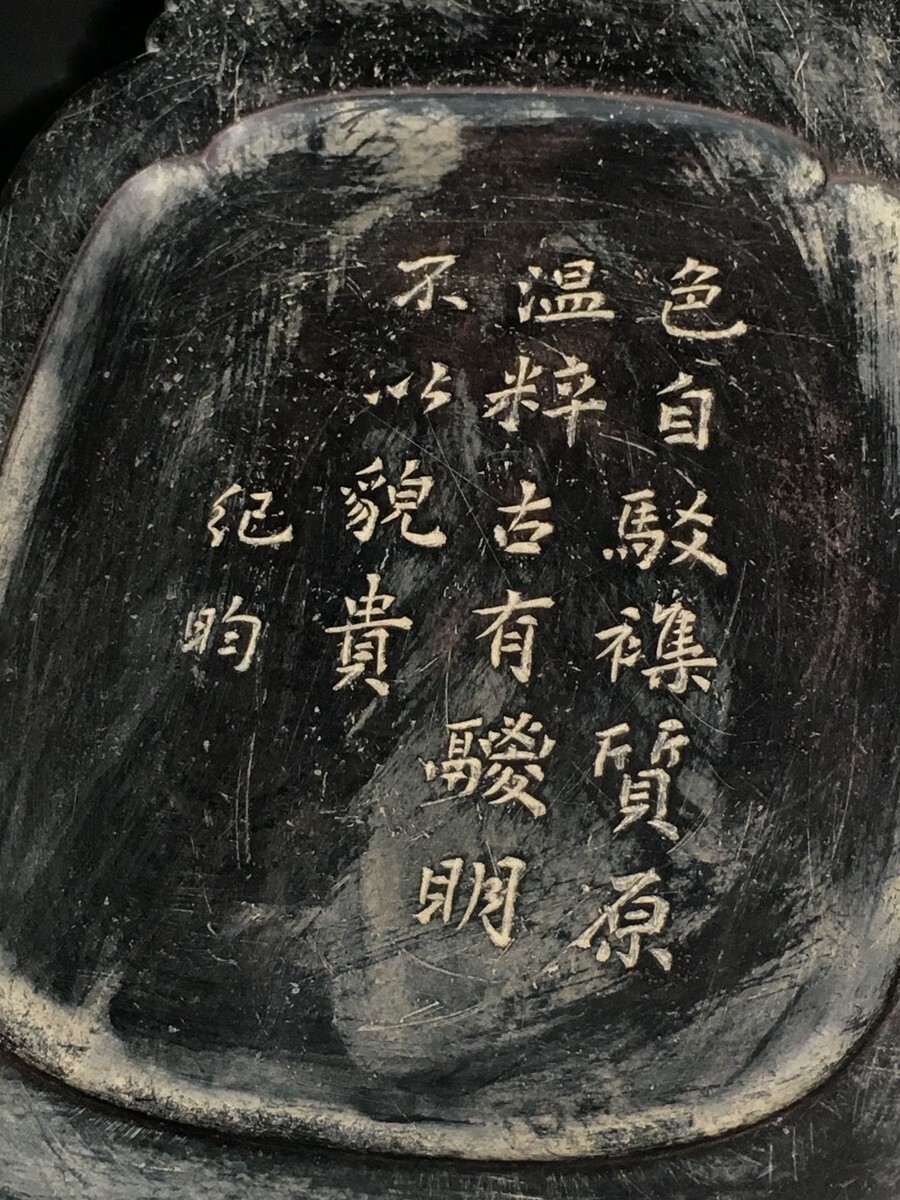 色自駁襍質原
温粹古有鬷明
不以貌貴
紀昀